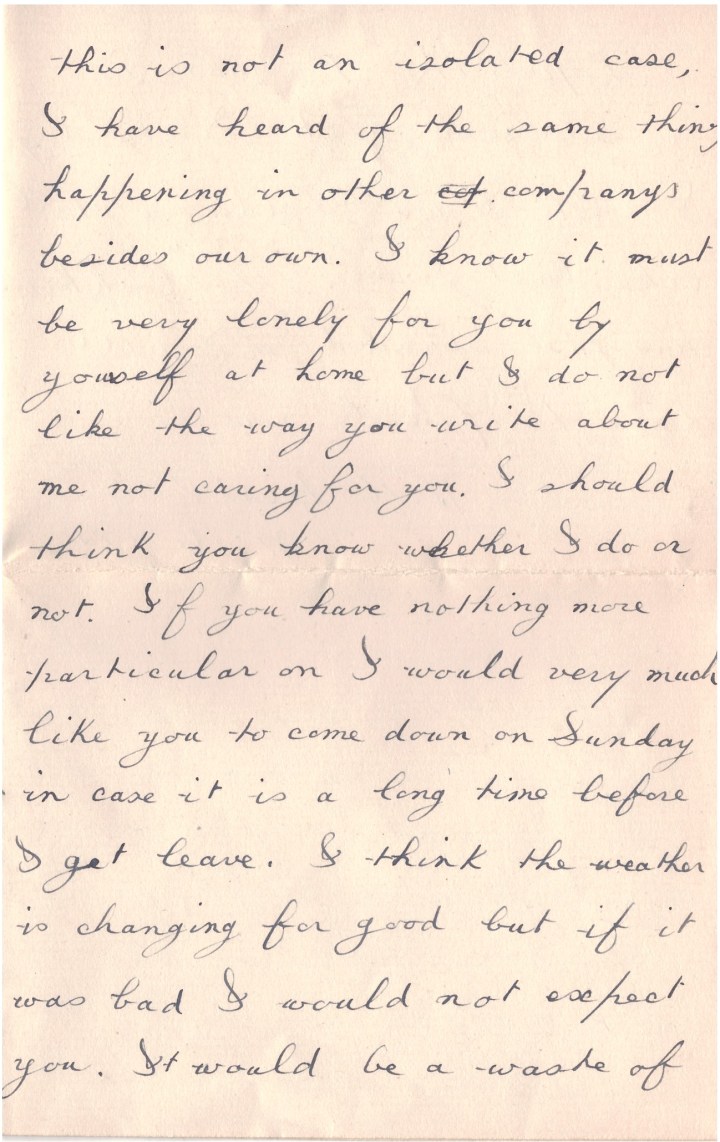 this is not an isolated case,
I have heard of the same thing
happening in other cof. companys
besides our own. I know it must
be very lonely for you by
youself at home but I do not
like the way you write about
me not caring for you. I should
think you know whether I do or
not. If you have nothing more
particular on I would very much
like you to come down on Sunday
in case it is a long time before
I get leave. I think the weather
is changing for good but if it
was bad I would not expect
you. It would be a waste of